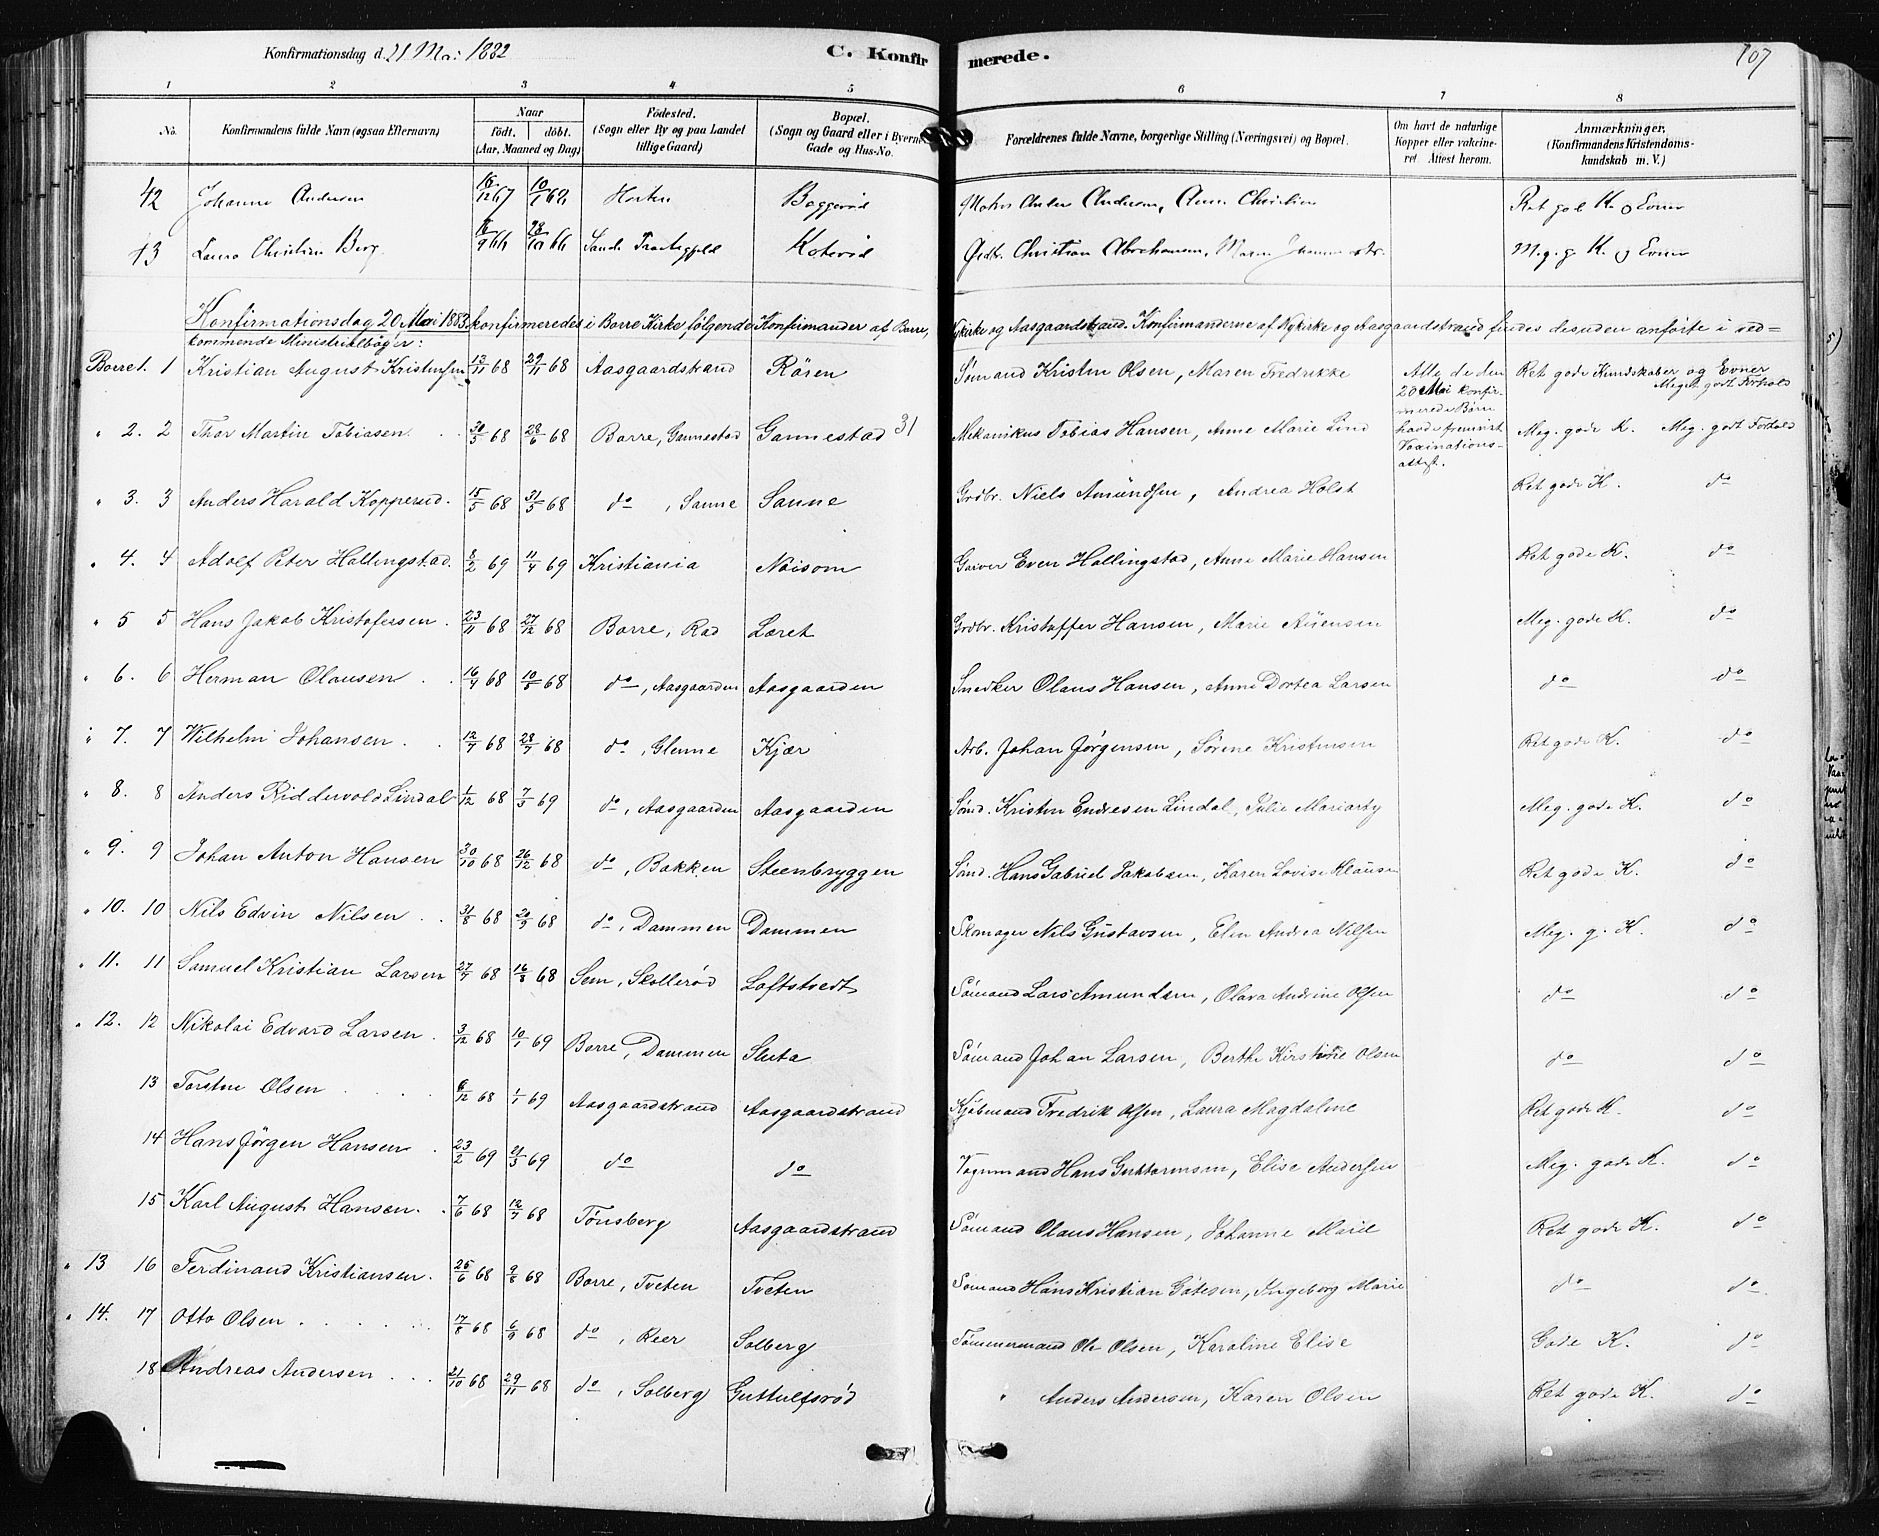 Konfirmationsdag d. 21 Mai 1882 C. Konfirmerede. 107
1 2 3 4 5 6 7 8
No. Konfirmandens fulde Navn (ogsaa Efternavn) Naar født. døbt. (Aar, Maaned og Dag) Fødested. (Sogn eller By og paa Landet tillige Gaard) Bopæl. (Sogn og Gaard eller i Byerne Gade og Hus-No. Forældrenes fulde Navne, borgerlige Stilling (Næringsvei) og Bopæl. Om havt de naturlige Kopper eller vakcineret Attest herom. Anmærkninger, (Konfirmandens Kristendomskundskab m. V.)
42 Johanne Andersen 16/12 67 Horten Baggerød Anders Andersen, Anne Christine Ret god K. og Evner
43 Laura Christine Berg Sande Koterød Gdbr. Christian Abrahamsen, M.g.g. K. og Evner
Konfirmationsdag 20 Mai 1883 konfirmeredes i Borre Kirke følgende Konfirmander af Borre, Nykirke og Aasgaardstrand. Konfirmanderne af Nykirke og Aasgaardstrand findes desuden anførte i ved-
kommende Ministrialbøger:
Borre 1. 1 Kristian August Kristensen 13/11 68 29/11 68 Aasgaardstrand Røren Sømand Kristen Olsen, Maren Fredrikke Alle de den 20 Mai konfirmerede Børn havde fremvist Vaxinationsattest. Ret gode Kundskaber og Evner Meget godt Forhold
" 2. 2 Thor Martin Tobiasen 30/5 68 28/6 68 Borre, Gannestad Gannestad 31 Mekanikus Tobias Hansen, Anne Marie Lind Meg. gode K. Meg. godt Forhold
" 3. 3 Anders Harald Kopperud. 15/5 68 31/5 68 do, Sanne Sanne Grdbr. Niels Amundsen, Andrea Holst Ret gode K. do
" 4. 4 Adolf Peter Hallingstad. 8/2 69 11/4 69 Kristiania Nøisom Garver Even Hallingstad, Anne Marie Hansen Ret gode K. do
" 5 5 Hans Jakob Kristofersen. 23/11 68 27/12 68 Borre, Rød Læret Grdbr. Kristoffer Hansen, Marie Auensen Meg. gode K. do
" 6. 6 Herman Olausen 16/4 68 10/5 68 do, Aasgaarden Aasgaarden Snedker Olaus Hansen, Anne Dortea Larsen do do
" 7. 7 Wilhelm Johansen 12/7 68 28/7 68 do, Glenne Kjær Arb. Johan Jørgensen, Sørene Kristensen Ret gode K. do
" 8. 8 Anders Riddervold Lindal 1/12 68 7/3 69 do, Aasgaarden Aasgaarden Sømd. Kristen Endresen Lindal, Julie Meg. gode K. do
" 9. 9 Johan Anton Hansen 30/10 68 26/12 68 do, Bakken Steenbryggen Sømd. Hans Gabriel Jakobsen, Karen Lovise Klausen Ret gode K. do
" 10. 10 Nils Edvin Nilsen 31/8 68 20/9 68 do, Dammen Dammen Skomager Nils Gustavsen, Elen Andrea Nilsen Meg. g. K. do
" 11. 11 Samuel Kristian Larsen 27/7 68 16/8 68 Sem, Skallerød Loftstvedt Sømand Lars Amundsen, Olava Andrine Olsen do do
" 12. 12 Nikolai Edvard Larsen 3/12 68 10/1 69 Borre, Dammen Sluta Sømand Johan Larsen, Berthe Kirstine Olsen do do
13 Torsten Olsen 6/12 68 1/1 69 Aasgaardstrand Aasgaardstrand Kjøbmand Fredrik Olsen, Laura Magdalene Ret gode K. do
14 Hans Jørgen Hansen 23/2 69 21/3 69 do do Vognmand Hans Guttormsen, Elise Andersen Meg. gode K. do
15 Karl August Hansen 7/6 68 12/7 68 Tønsberg Aasgaardstrand Sømand Olaus Hansen, Johanne Marie Ret gode K. do
" 13 16 Ferdinand Kristiansen 25/6 68 9/8 68 Borre, Tveten Tveten Sømand Hans Kristian Gøtesen, Ingeborg Marie do do
" 14. 17 Otto Olsen 17/8 68 6/9 68 do, Reer Solberg Tømmermand Ole Olsen, Karoline Elise Gode K. do
18 Andreas Andersen 21/10 68 29/11 68 do, Solberg Guttulfsrød " Anders Andersen, Karen Olsen Ret gode K. do